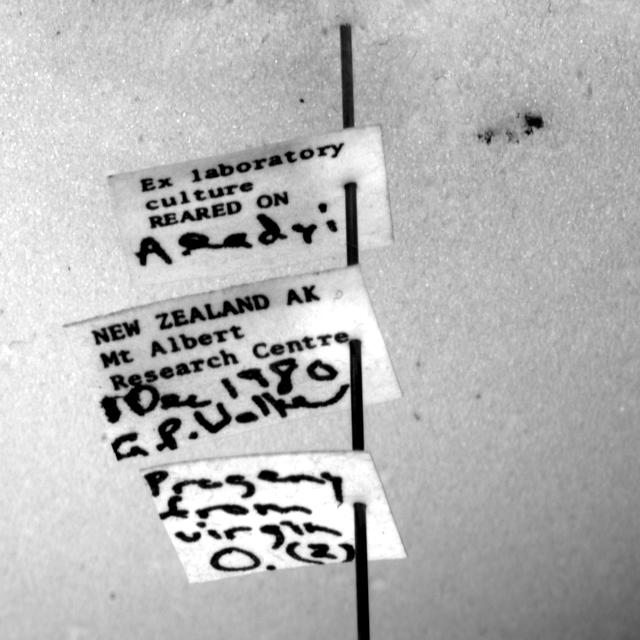 Ex laboratory
culture
REARED ON
A
NEW ZEALAND AK
Mt Albert
Research Centre
1 Dec 1980
G.P. Walker
from
virgin
O. (2)